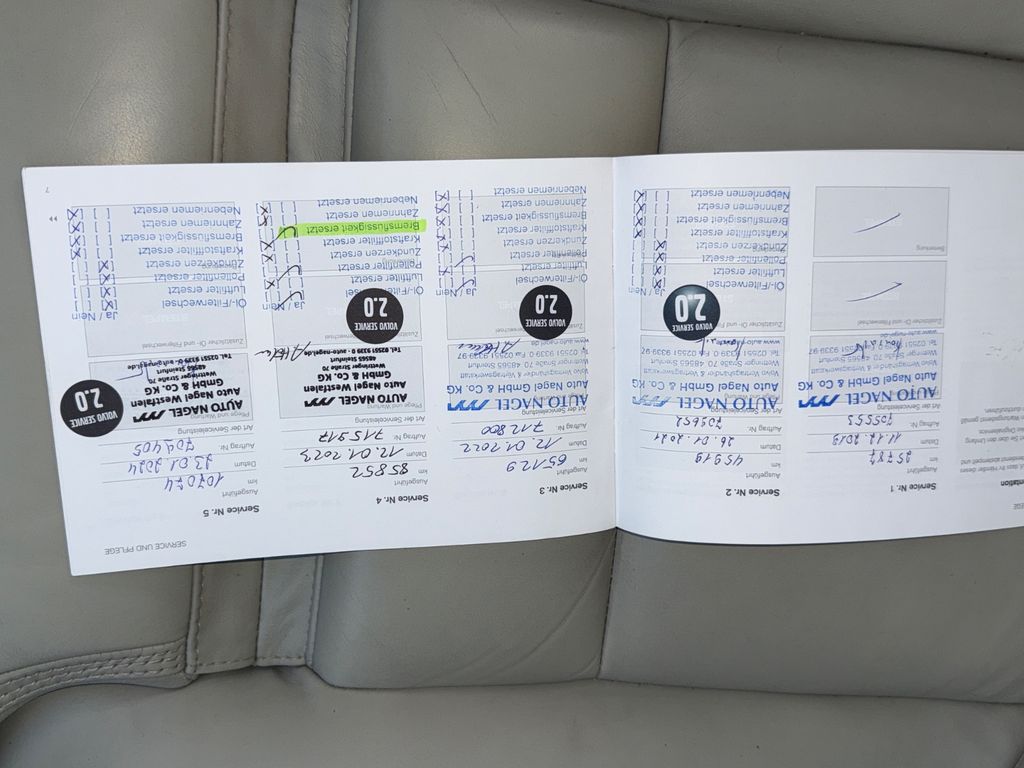 SERVICE UND PFLEGE
Service Nr. 1
Ausgeführt
km 25787
Datum 11.12.2019
Auftrag Nr. 705553
Art der Serviceleistung
AUTO NAGEL
Auto Nagel GmbH & Co. KG
Volvo Verkaufs- & Vertragswerkstatt
Wettringer Straße 70 48565 Steinfurt
Zusätzlicher Öl- und Filterwechsel
Bemerkung
Service Nr. 2
Ausgeführt
km 45919
Datum 26.01.2021
Auftrag Nr. 709652
Art der Serviceleistung
AUTO NAGEL
Auto Nagel GmbH & Co. KG
Wettringer Straße 70 48565 Steinfurt
VOLVO SERVICE
2.0
Zusätzlicher Öl- und Filterwechsel
Ja / Nein
Öl-/Filterwechsel
Luftfilter ersetzt
Pollenfilter ersetzt
Zündkerzen ersetzt
Kraftstofffilter ersetzt
Bremsflüssigkeit ersetzt
Zahnriemen ersetzt
Nebenriemen ersetzt
Service Nr. 3
Ausgeführt
km 65129
Datum 12.01.2022
Auftrag Nr. 712800
Art der Serviceleistung
AUTO NAGEL
Auto Nagel GmbH & Co. KG
Wettringer Straße 70 48565 Steinfurt
www.auto-nagel.de
VOLVO SERVICE
2.0
Zusätzlicher Öl- und Filterwechsel
Ja / Nein
Öl-/Filterwechsel
Luftfilter ersetzt
Pollenfilter ersetzt
Zündkerzen ersetzt
Kraftstofffilter ersetzt
Bremsflüssigkeit ersetzt
Zahnriemen ersetzt
Nebenriemen ersetzt
Service Nr. 4
Ausgeführt
km 85852
Datum 12.01.2023
Auftrag Nr. 715917
Art der Serviceleistung
Pflege und Wartung
AUTO NAGEL
Auto Nagel Westfalen
GmbH & Co. KG
Wettringer Straße 70
48565 Steinfurt
Tel. 02551 9339 0 · auto-nagel.de
VOLVO SERVICE
2.0
Ja / Nein
Öl-/Filterwechsel
Luftfilter ersetzt
Pollenfilter ersetzt
Zündkerzen ersetzt
Kraftstofffilter ersetzt
Bremsflüssigkeit ersetzt
Zahnriemen ersetzt
Nebenriemen ersetzt
Service Nr. 5
Ausgeführt
km 107074
Datum 23.01.2024
Auftrag Nr. 704405
Art der Serviceleistung
Pflege und Wartung
AUTO NAGEL
Auto Nagel Westfalen
GmbH & Co. KG
Wettringer Straße 70
48565 Steinfurt
Tel. 02551 9339 0 · auto-nagel.de
VOLVO SERVICE
2.0
Ja / Nein
Öl-/Filterwechsel
Luftfilter ersetzt
Pollenfilter ersetzt
Zündkerzen ersetzt
Kraftstofffilter ersetzt
Bremsflüssigkeit ersetzt
Zahnriemen ersetzt
Nebenriemen ersetzt
7